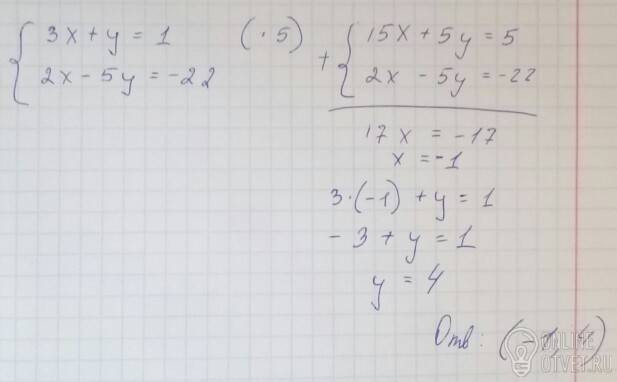 3x + y = 1 (· 5)
2x - 5y = -22
+ 15x + 5y = 5
2x - 5y = -22
17x = -17
x = -1
3·(-1) + y = 1
- 3 + y = 1
y = 4
Отв: (-1; 4)
ONLINE
OTVET.RU